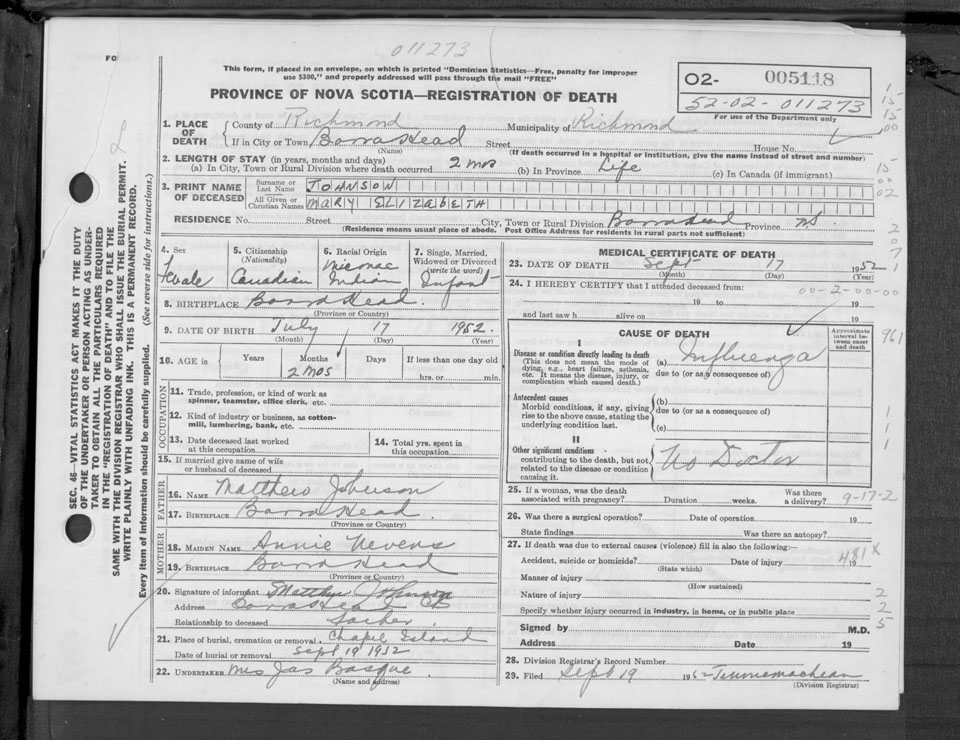 011273
FO
This form, if placed in an envelope, on which is printed "Dominion Statistics—Free, penalty for improper
use $300," and properly addressed will pass through the mail "FREE"
O2- 005118
52-02-011273
For use of the Department only
PROVINCE OF NOVA SCOTIA—REGISTRATION OF DEATH
1. PLACE OF DEATH { County of Richmond Municipality of Richmond
If in City or Town Barra Head Street House No.
(Name) (If death occurred in a hospital or institution, give the name instead of street and number)
2. LENGTH OF STAY (in years, months and days)
(a) In City, Town or Rural Division where death occurred. 2 mos (b) In Province Life (c) In Canada (if immigrant)
3. PRINT NAME OF DECEASED { Surname or Last Name JOHNSON
All Given or Christian Names MARY ELIZABETH
RESIDENCE No. Street City, Town or Rural Division Barra Head Province N.S.
(Residence means usual place of abode. Post Office Address for residents in rural parts not sufficient)
4. Sex Female
5. Citizenship (Nationality) Canadian
6. Racial Origin Micmac Indian
7. Single, Married, Widowed or Divorced (write the word) Infant
8. BIRTHPLACE Barra Head.
(Province or Country)
9. DATE OF BIRTH July 17 1952.
(Month) (Day) (Year)
10. AGE in { Years Months Days If less than one day old
2 mos hrs. or min.
OCCUPATION
11. Trade, profession, or kind of work as
spinner, teamster, office clerk, etc.
12. Kind of industry or business, as cotton-
mill, lumbering, bank, etc.
13. Date deceased last worked
at this occupation
14. Total yrs. spent in
this occupation
15. If married give name of wife
or husband of deceased
FATHER
16. NAME Matthew Johnson
17. BIRTHPLACE Barra Head.
(Province or Country)
MOTHER
18. MAIDEN NAME Annie Nevens
19. BIRTHPLACE Barra Head
(Province or Country)
20. Signature of informant Matthew Johnson
Address Barra Head CB
Relationship to deceased father.
21. Place of burial, cremation or removal. Chapel Island
Date of burial or removal Sept 19 1952
22. UNDERTAKER Mrs Jas Basque.
(Name and address)
MEDICAL CERTIFICATE OF DEATH
23. DATE OF DEATH Sept 17 1952
(Month) (Day) (Year)
24. I HEREBY CERTIFY that I attended deceased from:
00-2-00-00
19 to 19
and last saw h alive on 19
CAUSE OF DEATH
Approximate interval between onset and death
I
Disease or condition directly leading to death
(This does not mean the mode of
dying, e.g., heart failure, asthenia,
etc. It means the disease, injury, or
complication which caused death.)
(a) Influenza
due to (or as a consequence of)
Antecedent causes
Morbid conditions, if any, giving
rise to the above cause, stating the
underlying condition last.
(b)
due to (or as a consequence of)
(c)
II
Other significant conditions
contributing to the death, but not
related to the disease or condition
causing it.
No Doctor
25. If a woman, was the death
associated with pregnancy? Duration weeks. Was there a delivery? 9-17-2
26. Was there a surgical operation? Date of operation 19
State findings Was there an autopsy?
27. If death was due to external causes (violence) fill in also the following:—
481 X
Accident, suicide or homicide? Date of injury 19
(State which)
Manner of injury
(How sustained)
Nature of injury
Specify whether injury occurred in industry, in home, or in public place
Signed by M.D.
Address Date 19
28. Division Registrar's Record Number
29. Filed Sept 19 1952
(Division Registrar)
SEC. 46—VITAL STATISTICS ACT MAKES IT THE DUTY
OF THE UNDERTAKER OR PERSON ACTING AS UNDER-
TAKER TO OBTAIN ALL THE PARTICULARS REQUIRED
IN THE "REGISTRATION OF DEATH" AND TO FILE THE
SAME WITH THE DIVISION REGISTRAR WHO SHALL ISSUE THE BURIAL PERMIT.
WRITE PLAINLY WITH UNFADING INK. THIS IS A PERMANENT RECORD.
Every item of information should be carefully supplied. (See reverse side for instructions.)
1
15
15
00
15
00
02
2
0
7
1
961
1
1
2
2
5